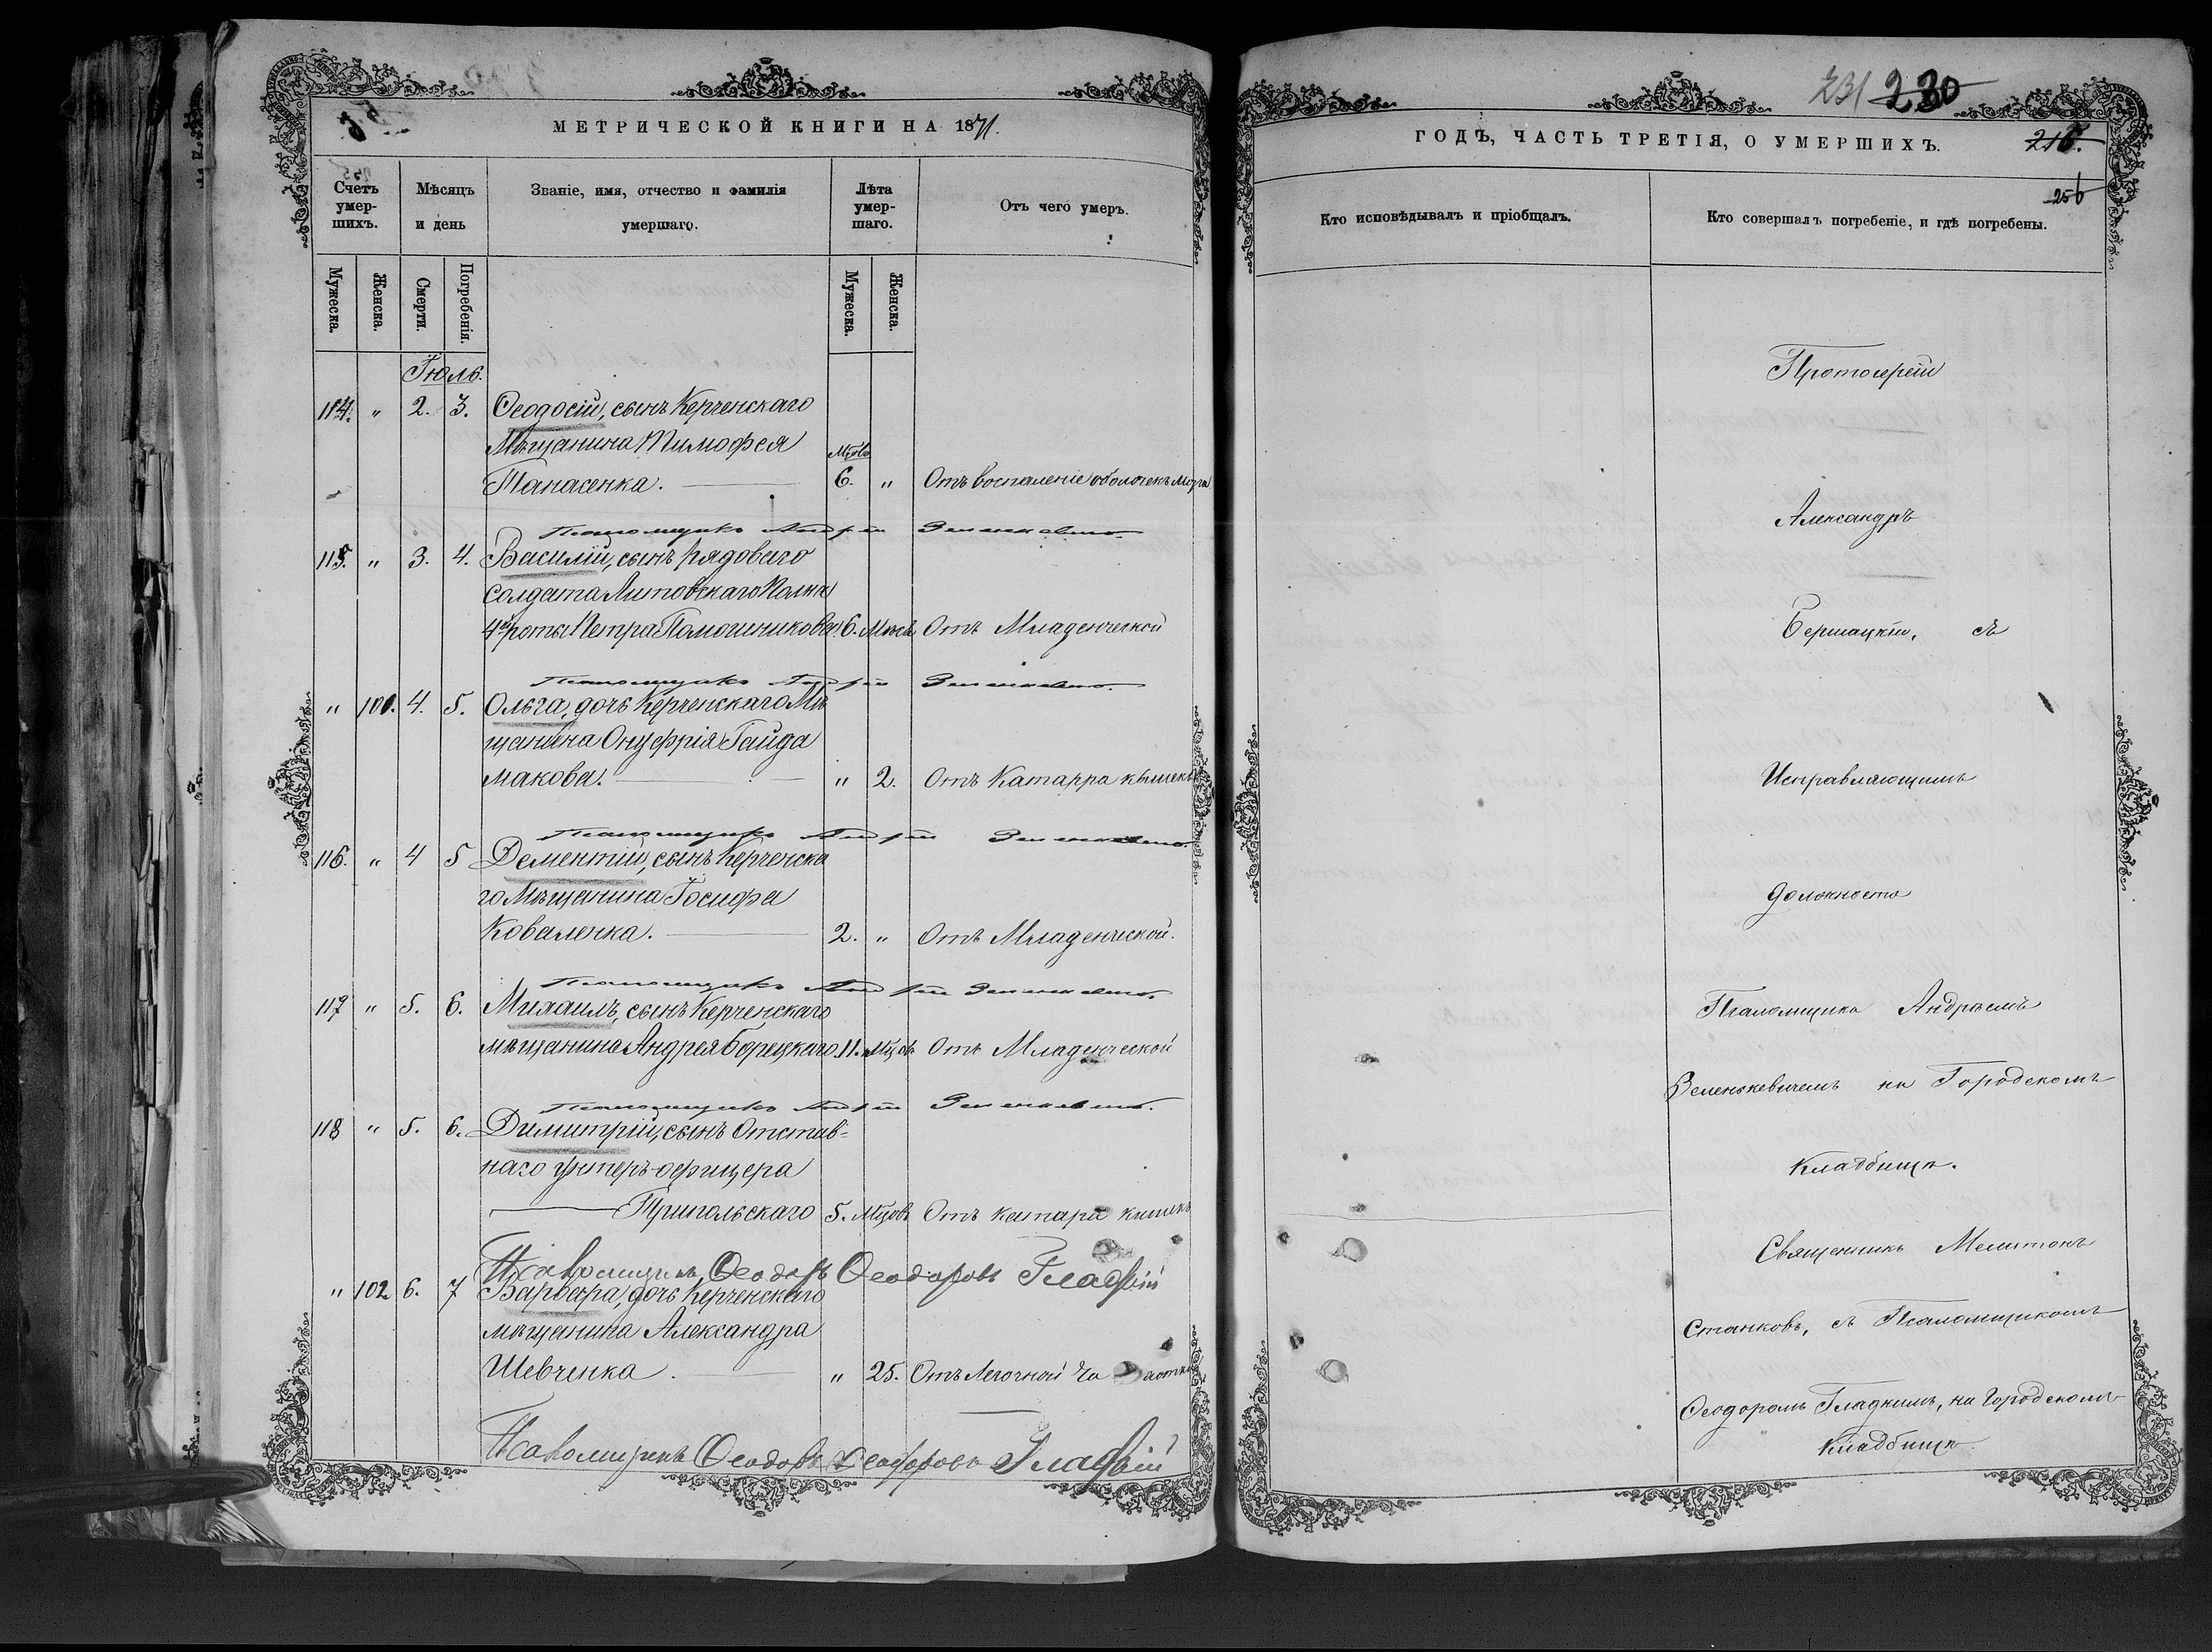 МЕТРИЧЕСКОЙ КНИГИ НА 1871.
Счетъ умер-шихъ.
Мѣсяцъ и день
Званіе, имя, отчество и фамилія умершаго.
Лѣта умер-шаго.
Отъ чего умеръ.
Мужеска.
Женска.
Смерти.
Погребенія.
Мужеска.
Женска.
Іюль.
114. " 2. 3. Ѳеодосій, сынъ Керченскаго
Мѣщанина Тимофея
Мцовъ
Танасенка. 6. " Отъ воспаленіе оболочекъ мозга
Псаломщикъ Андрей Зеленкевичъ.
115. " 3. 4. Василій, сынъ рядоваго
солдата Литовскаго Полка
4й роты Петра 6. Мѣс. Отъ Младенческой
Псаломщикъ Андрей Зеленкевичъ.
" 101. 4. 5. Ольга, дочь Керченскаго Мѣ
щанина Онуфрія Гайда
макова. " 2. Отъ Катарра кишекъ
Псаломщикъ Андрей Зеленкевичъ.
116. " 4 5 Дементій, сынъ Керченска
го Мѣщанина Іосифа
Коваленка. 2. " Отъ Младенческой.
Псаломщикъ Андрей Зеленкевичъ.
117 " 5. 6. Михаилъ, сынъ Керченскаго
мѣщанина Андрея Борецкаго. 11. Мцовъ Отъ Младенческой
Псаломщикъ Андрей Зеленкевичъ.
118 " 5. 6. Димитрій, сынъ Отстав-
наго унтеръ-офицера
Трипольскаго 5. Мцовъ Отъ катара кишекъ
Псаломщикъ Ѳеодоръ Ѳеодоровъ Гладкій
" 102 6. 7 Варвара, дочь Керченскаго
мѣщанина Александра
Шевченка. " 25. Отъ Легочной Чахотки
Псаломщикъ Ѳеодоръ Ѳеодоровъ Гладкій
231 230
ГОДЪ, ЧАСТЬ ТРЕТІЯ, О УМЕРШИХЪ.
216.
256
Кто исповѣдывалъ и пріобщалъ.
Кто совершалъ погребеніе, и гдѣ погребены.
Протоіерей
Александръ
съ
Исправляющимъ
должность
Псаломщика Андреемъ
Зеленкевичемъ на Городскомъ
Кладбищѣ.
Священникъ Мелитонъ
Станковъ, съ Псаломщикомъ
Ѳеодоромъ Гладкимъ, на Городскомъ
Кладбищѣ